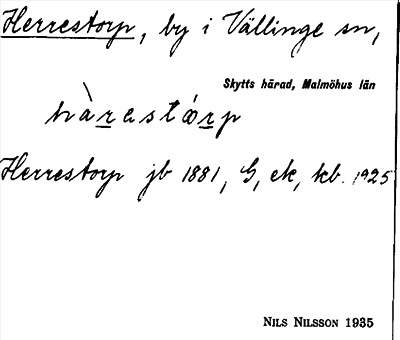 Herrestorp, by i Vällinge sn,
Skytts härad, Malmöhus län
hàrastórp
Herrestorp jb 1881, G, ek, kb. 1925
NILS NILSSON 1935